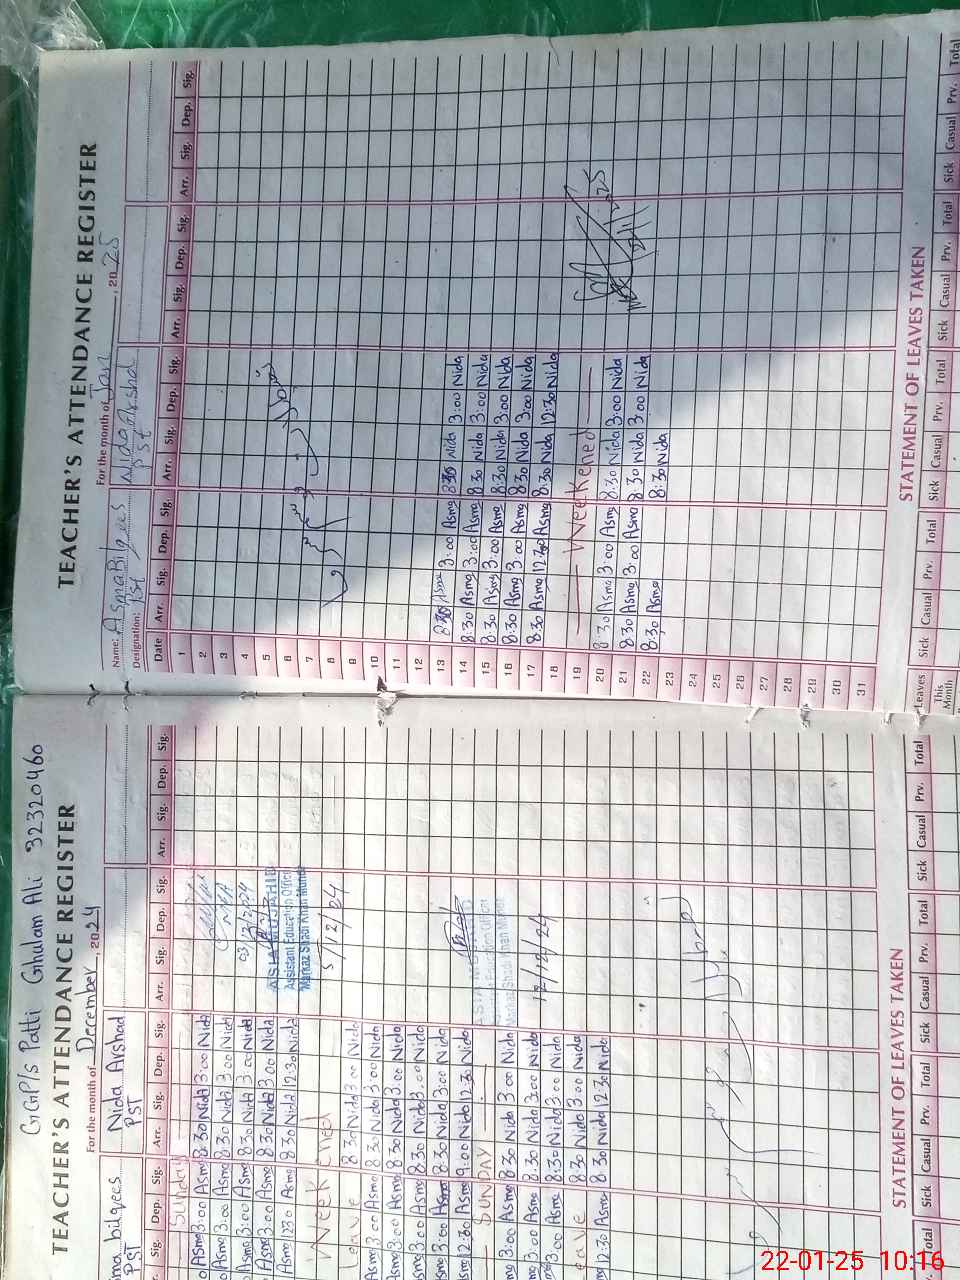 GGP/s Patti Ghulam Ali 32320460
TEACHER'S ATTENDANCE REGISTER
For the month of December, 2024
Nida Arshad
PST PST
Sig. Dep. Sig. Arr. Sig. Dep. Sig. Arr. Sig. Dep. Sig. Arr. Sig. Dep. Sig.
Sunday
3:00 Asma 8:30 Nida 3:00 Nida
Asma 3:00 Asma 8:30 Nida 3:00 Nida
Asma 3:00 Asma 8:30 Nida 3:00 Nida
03/12/2024
Asma 3:00 Asma 8:30 Nida 3:00 Nida
Asma 12:30 Asma 8:30 Nida 12:30 Nida
Assistant Education Officer
Week end
5/12/24
Leave 8:30 Nida 3:00 Nida
Asma 3:00 Asma 8:30 Nida 3:00 Nida
Asma 3:00 Asma 8:30 Nida 3:00 Nida
Asma 3:00 Asma 8:30 Nida 3:00 Nida
Asma 3:00 Asma 8:30 Nida 3:00 Nida
Asma 12:30 Asma 9:00 Nida 12:30 Nida
SUNDAY
Asma 3:00 Asma 8:30 Nida 3:00 Nida
Asma 3:00 Asma 8:30 Nida 3:00 Nida
17/12/24
Asma 3:00 Asma 8:30 Nida 3:00 Nida
Leave 8:30 Nida 3:00 Nida
Asma 12:30 Asma 8:30 Nida 12:30 Nida
STATEMENT OF LEAVES TAKEN
Total Sick Casual Prv. Total Sick Casual Prv. Total Sick Casual Prv. Total
TEACHER'S ATTENDANCE REGISTER
For the month of Jan, 2025
Name: Asma Bilqees Nida Arshad
Designation: PST PST
Date Arr. Sig. Dep. Sig. Arr. Sig. Dep. Sig. Arr. Sig. Dep. Sig. Arr. Sig. Dep. Sig.
1
2
3
4
5
6
7
8
9
10
11
12
13 8:30 Asma 3:00 Asma 8:30 Nida 3:00 Nida
14 8:30 Asma 3:00 Asma 8:30 Nida 3:00 Nida
15 8:30 Asma 3:00 Asma 8:30 Nida 3:00 Nida
16 8:30 Asma 3:00 Asma 8:30 Nida 3:00 Nida
17 8:30 Asma 12:30 Asma 8:30 Nida 12:30 Nida
18
19 Weekened
20 8:30 Asma 3:00 Asma 8:30 Nida 3:00 Nida
21 8:30 Asma 3:00 Asma 8:30 Nida 3:00 Nida
22 8:30 Asma 8:30 Nida
23
24
25
26
27
28
29
30
31
STATEMENT OF LEAVES TAKEN
Leaves Sick Casual Prv. Total Sick Casual Prv. Total Sick Casual Prv. Total Sick Casual Prv. Total
This
Month
22-01-25 10:16